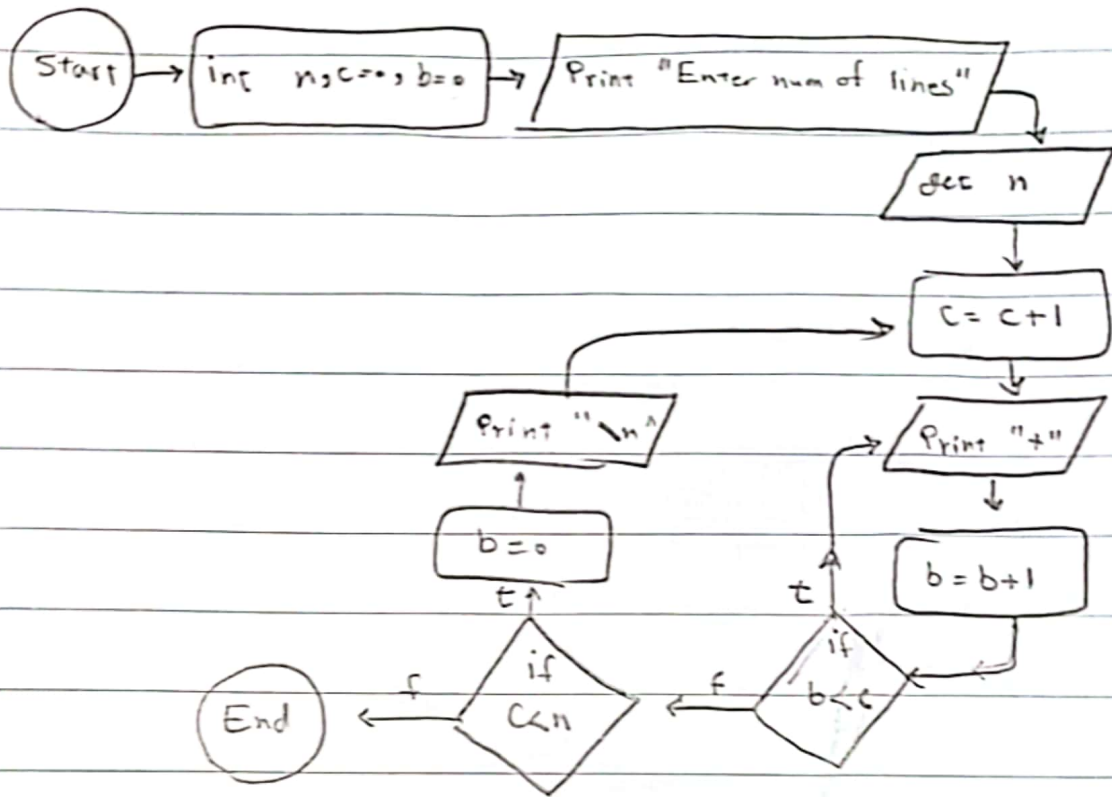 Start
int n, c=0, b=0
Print "Enter num of lines"
get n
c = c+1
Print "+"
b = b+1
if
b<c
t
f
if
c<n
t
b=0
Print "\n"
f
End